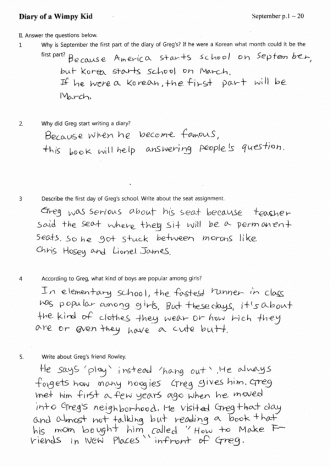 Diary of a Wimpy Kid
September p.1 – 20
B. Answer the questions below.
1 Why is September the first part of the diary of Greg's? If he were a Korean what month could it be the
first part? Because America starts school on September,
but Korea starts school on March.
If he were a Korean, the first part will be
March.
2. Why did Greg start writing a diary?
Because when he become famous,
this book will help answering people's question.
3 Describe the first day of Greg's school. Write about the seat assignment.
Greg was serious about his seat because teacher
said the seat where they sit will be a permanent
seats. So he got stuck between morons like
Chris Hosey and Lionel James.
4 According to Greg, what kind of boys are popular among girls?
In elementary school, the fastest runner in class
was popular among girls. But these days, it's about
the kind of clothes they wear or how rich they
are or even they have a cute butt.
5. Write about Greg's friend Rowley.
He says 'play' instead 'hang out'. He always
forgets how many noogies Greg gives him. Greg
met him first a few years ago when he moved
into Greg's neighborhood. He visited Greg that day
and almost not talking but reading a book that
his mom bought him called "How to Make F-
riends in New Places" infront of Greg.